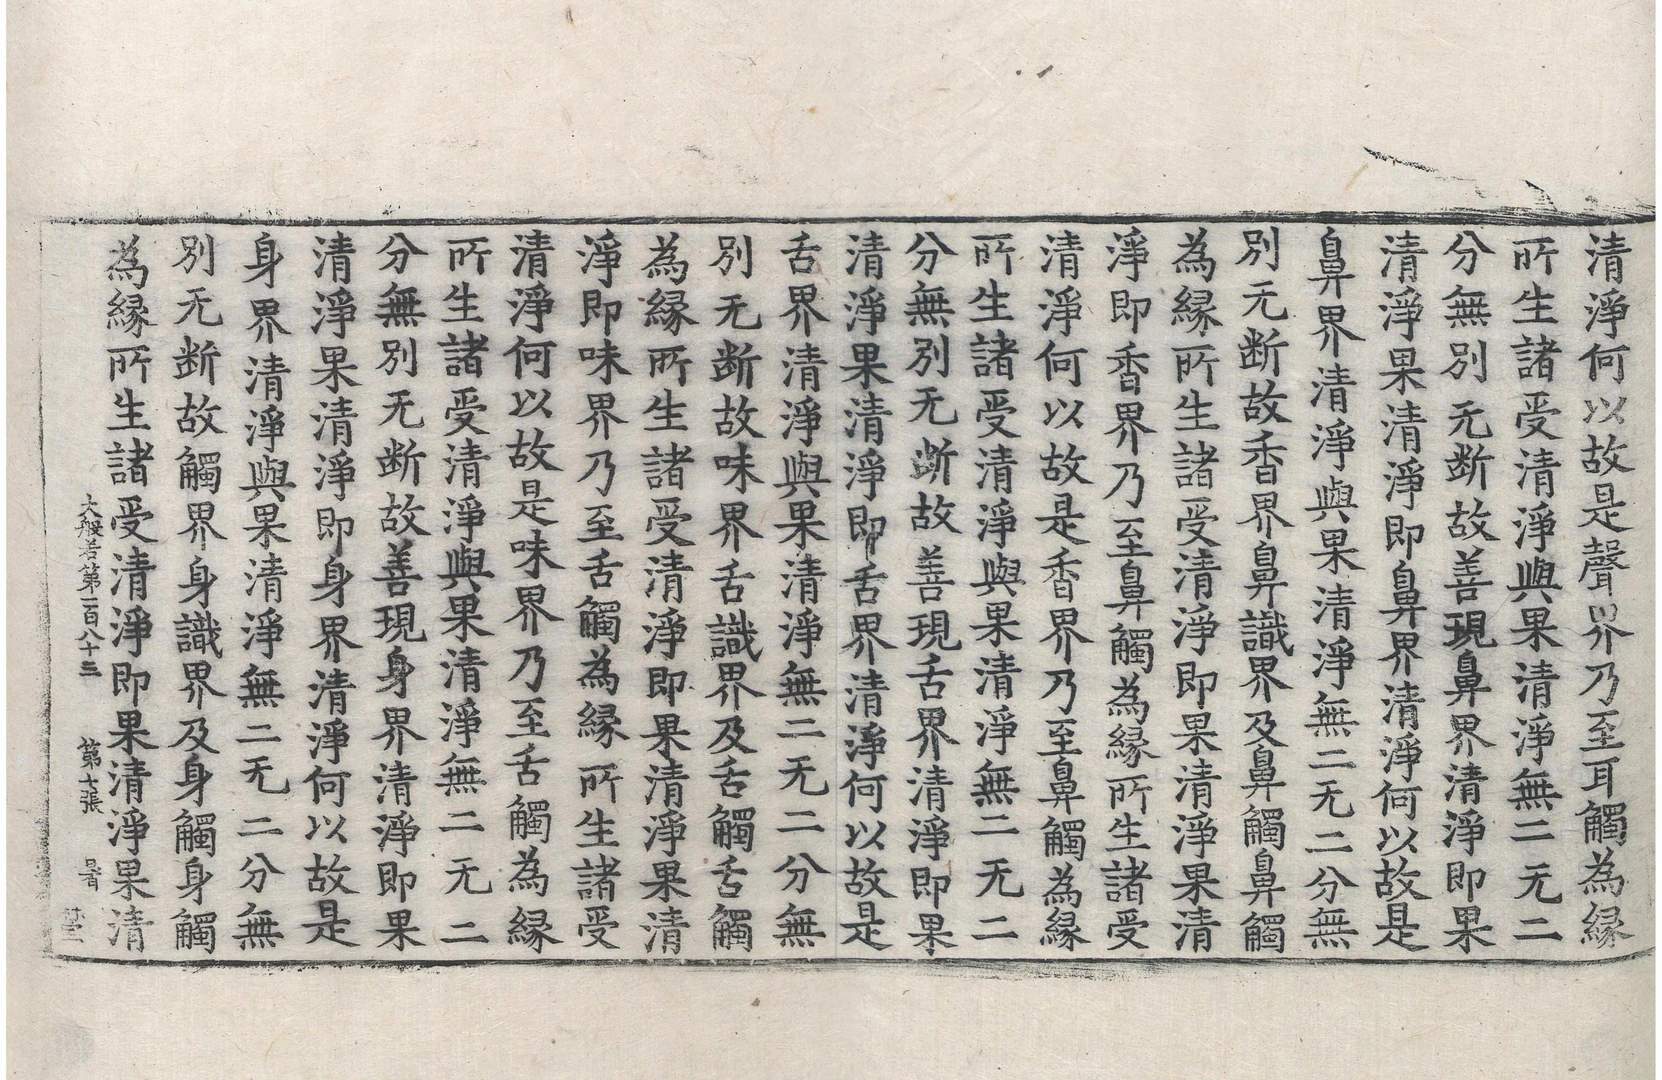 清淨何以故是聲界乃至耳觸為縁
所生諸受清淨與果清淨無二无二
分無別无断故善現鼻界清淨即果
清淨果清淨即鼻界清淨何以故是
鼻界清淨與果清淨無二无二分無
別无断故香界鼻識界及鼻觸鼻觸
為縁所生諸受清淨即果清淨果清
淨即香界乃至鼻觸為縁所生諸受
清淨何以故是香界乃至鼻觸為縁
所生諸受清淨與果清淨無二无二
分無別无断故善現舌界清淨即果
清淨果清淨即舌界清淨何以故是
舌界清淨與果清淨無二无二分無
別无断故味界舌識界及舌觸舌觸
為縁所生諸受清淨即果清淨果清
淨即味界乃至舌觸為縁所生諸受
清淨何以故是味界乃至舌觸為縁
所生諸受清淨與果清淨無二无二
分無別无断故善現身界清淨即果
清淨果清淨即身界清淨何以故是
身界清淨與果清淨無二无二分無
別无断故觸界身識界及身觸身觸
為縁所生諸受清淨即果清淨果清
大般若第一百八十三 第七張